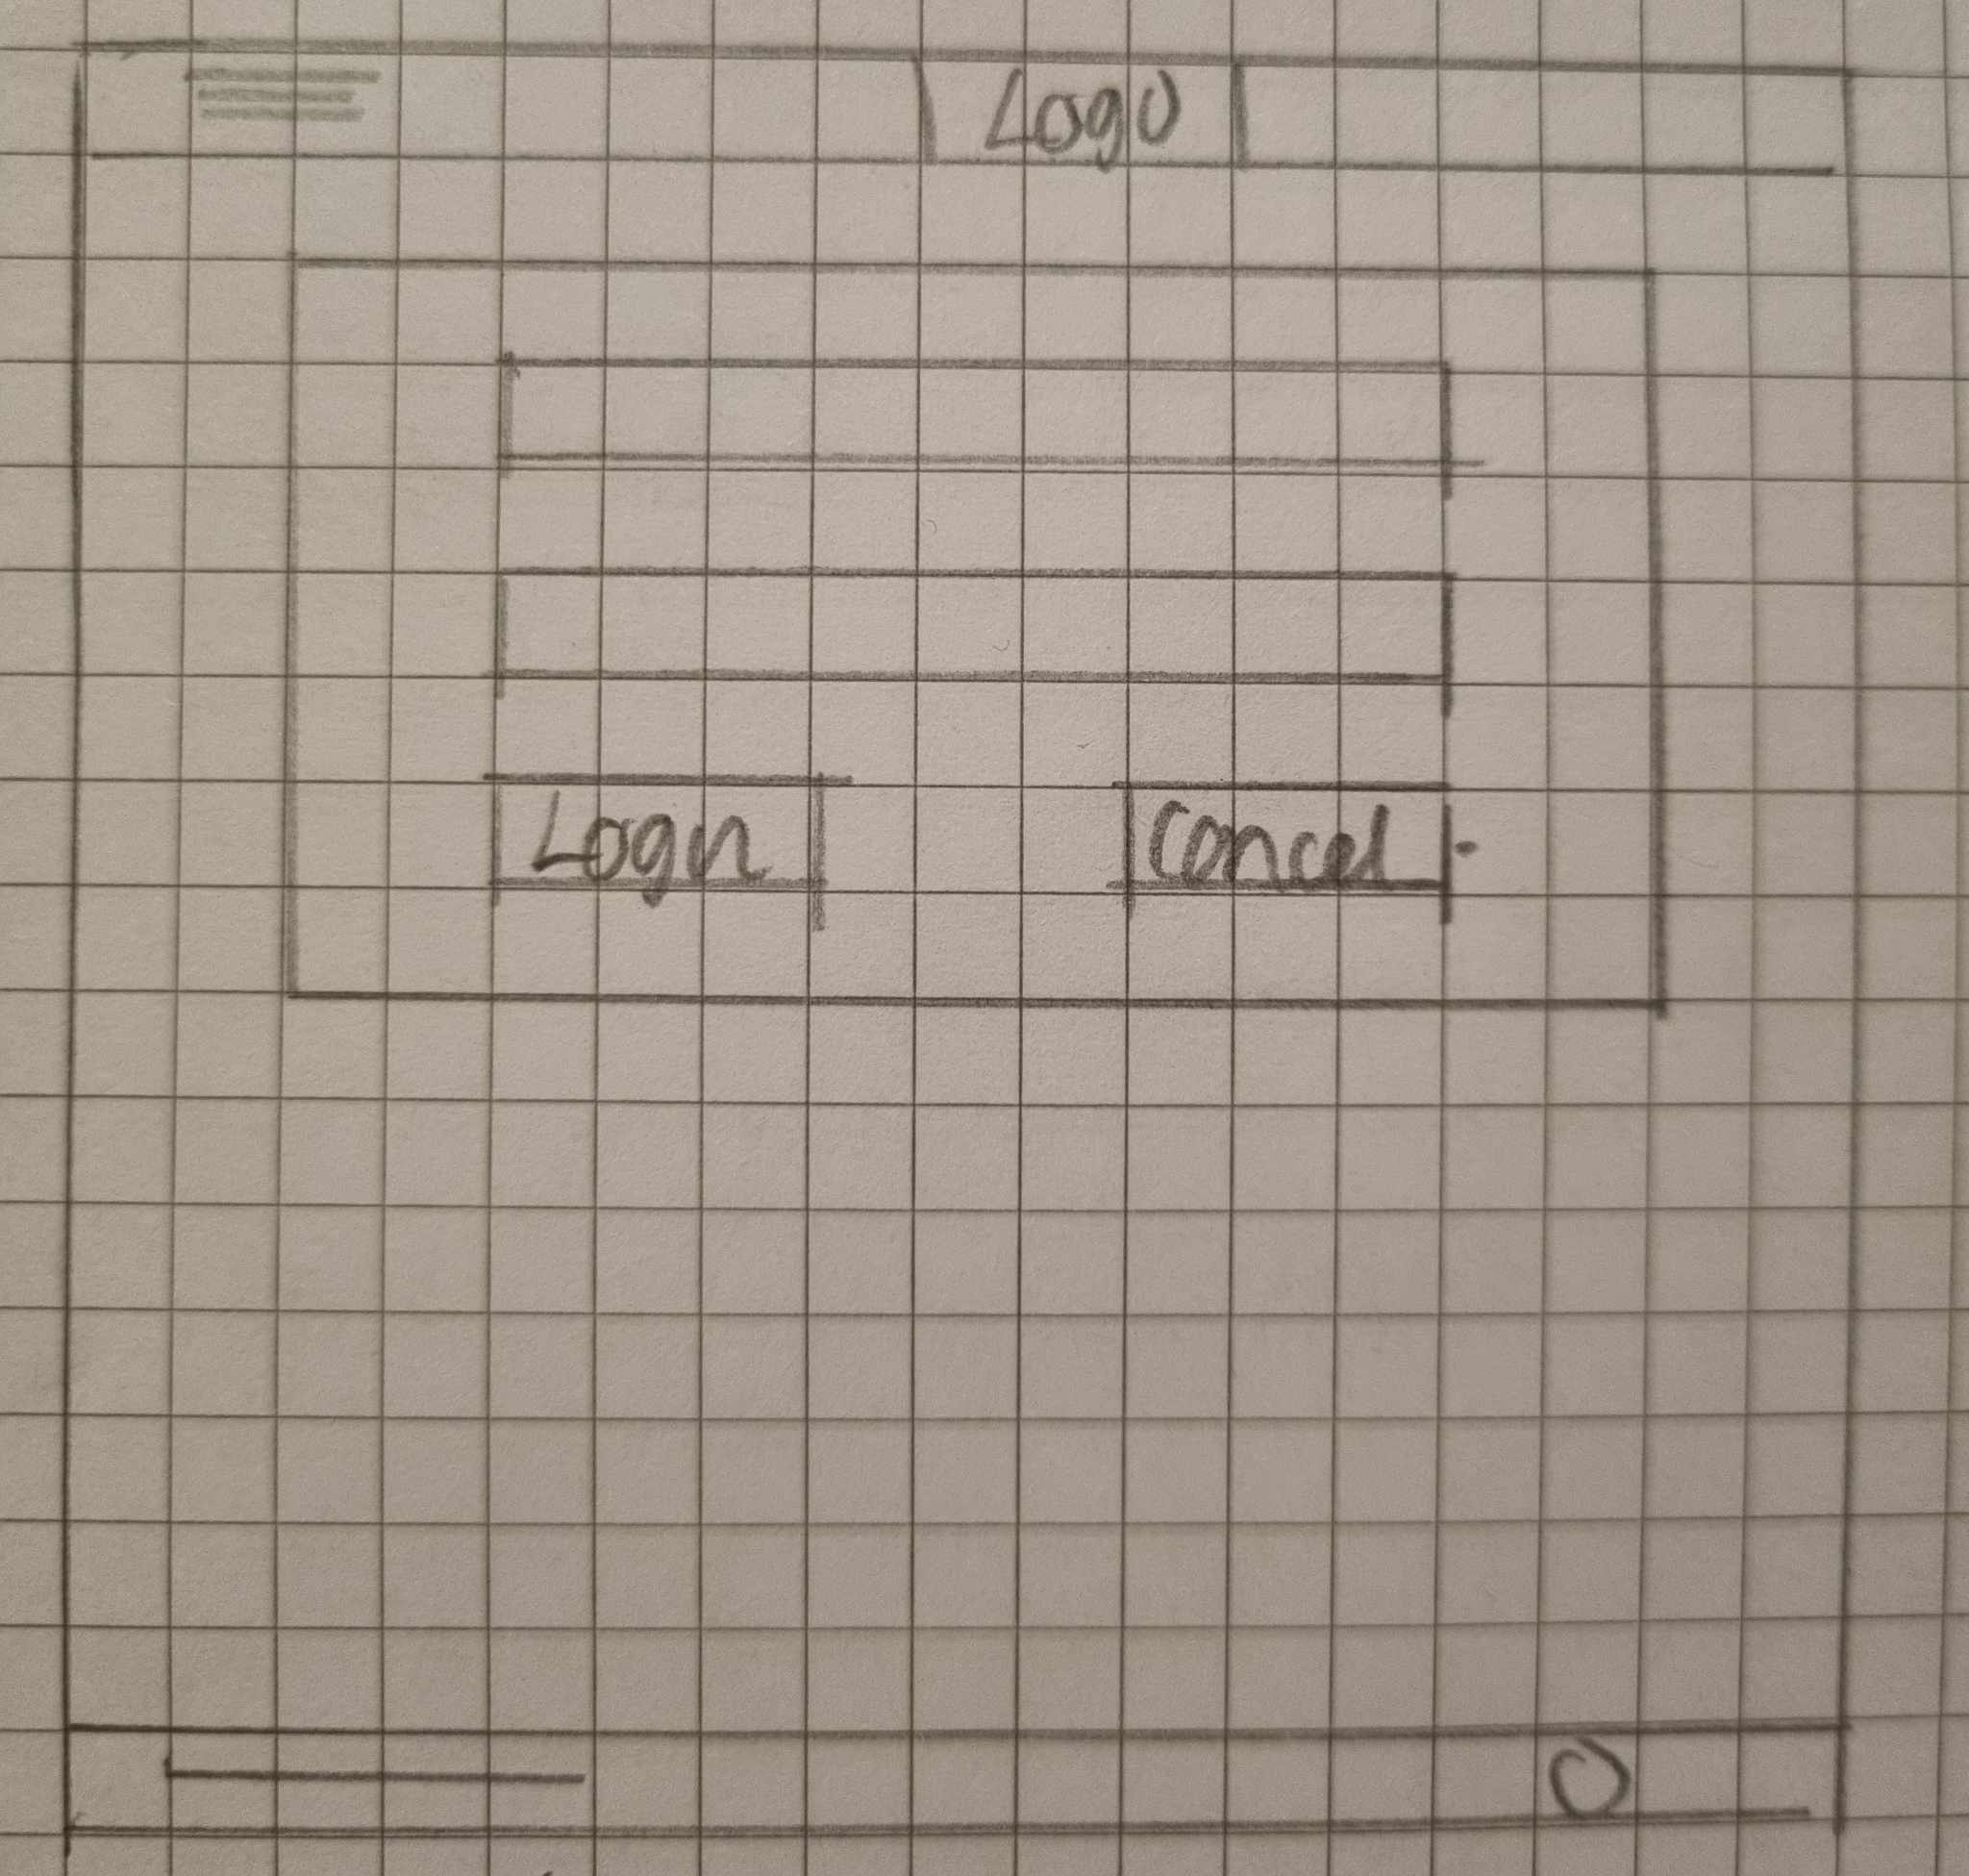 Logo
Login
Cancel